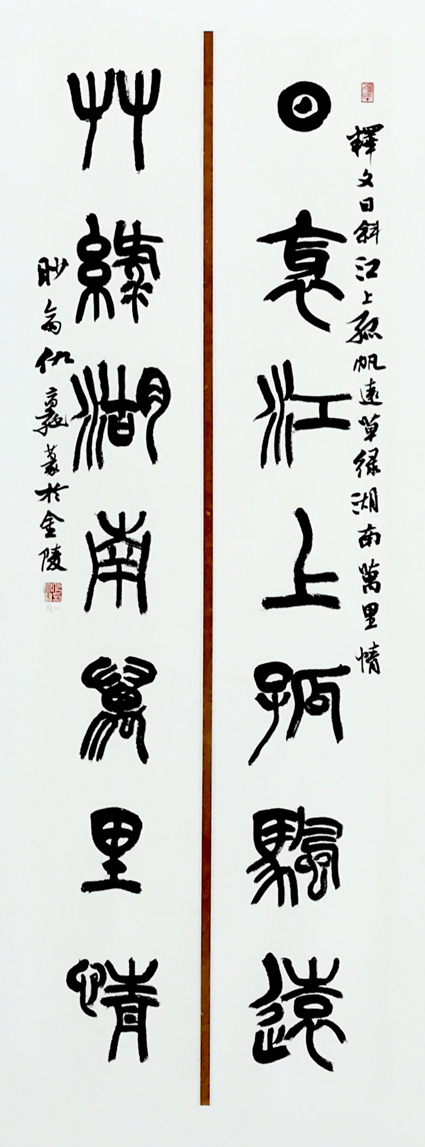 釋文日斜江上孤帆遠草綠湖南萬里情
日衺江上孤颿遠
艸綠湖南萬里情
篆於金陵